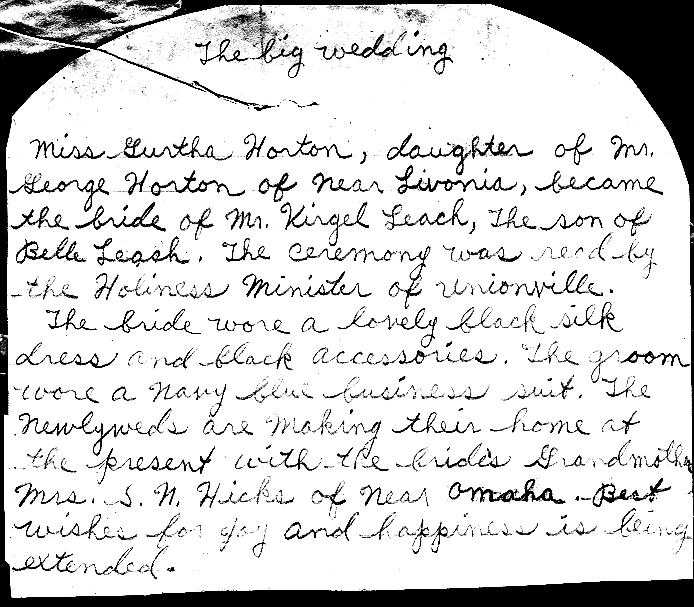 The big wedding
Miss Gurtha Horton, daughter of Mr.
George Horton of near Livonia, became
the bride of Mr. Kirgel Leach, The son of
Belle Leach. The ceremony was read by
the Holiness Minister of Unionville.
The bride wore a lovely black silk
dress and black accessories. The groom
wore a navy blue business suit. The
Newlyweds are making their home at
the present with the bride's Grandmother
Mrs. S. N. Hicks of near Omaha. Best
wishes for joy and happiness is being
extended.